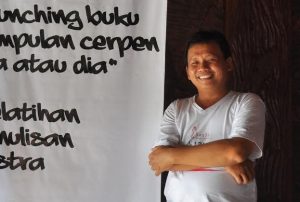 unching buku
mpulan cerpen
a atau dia"
elatihan
nulisan
stra